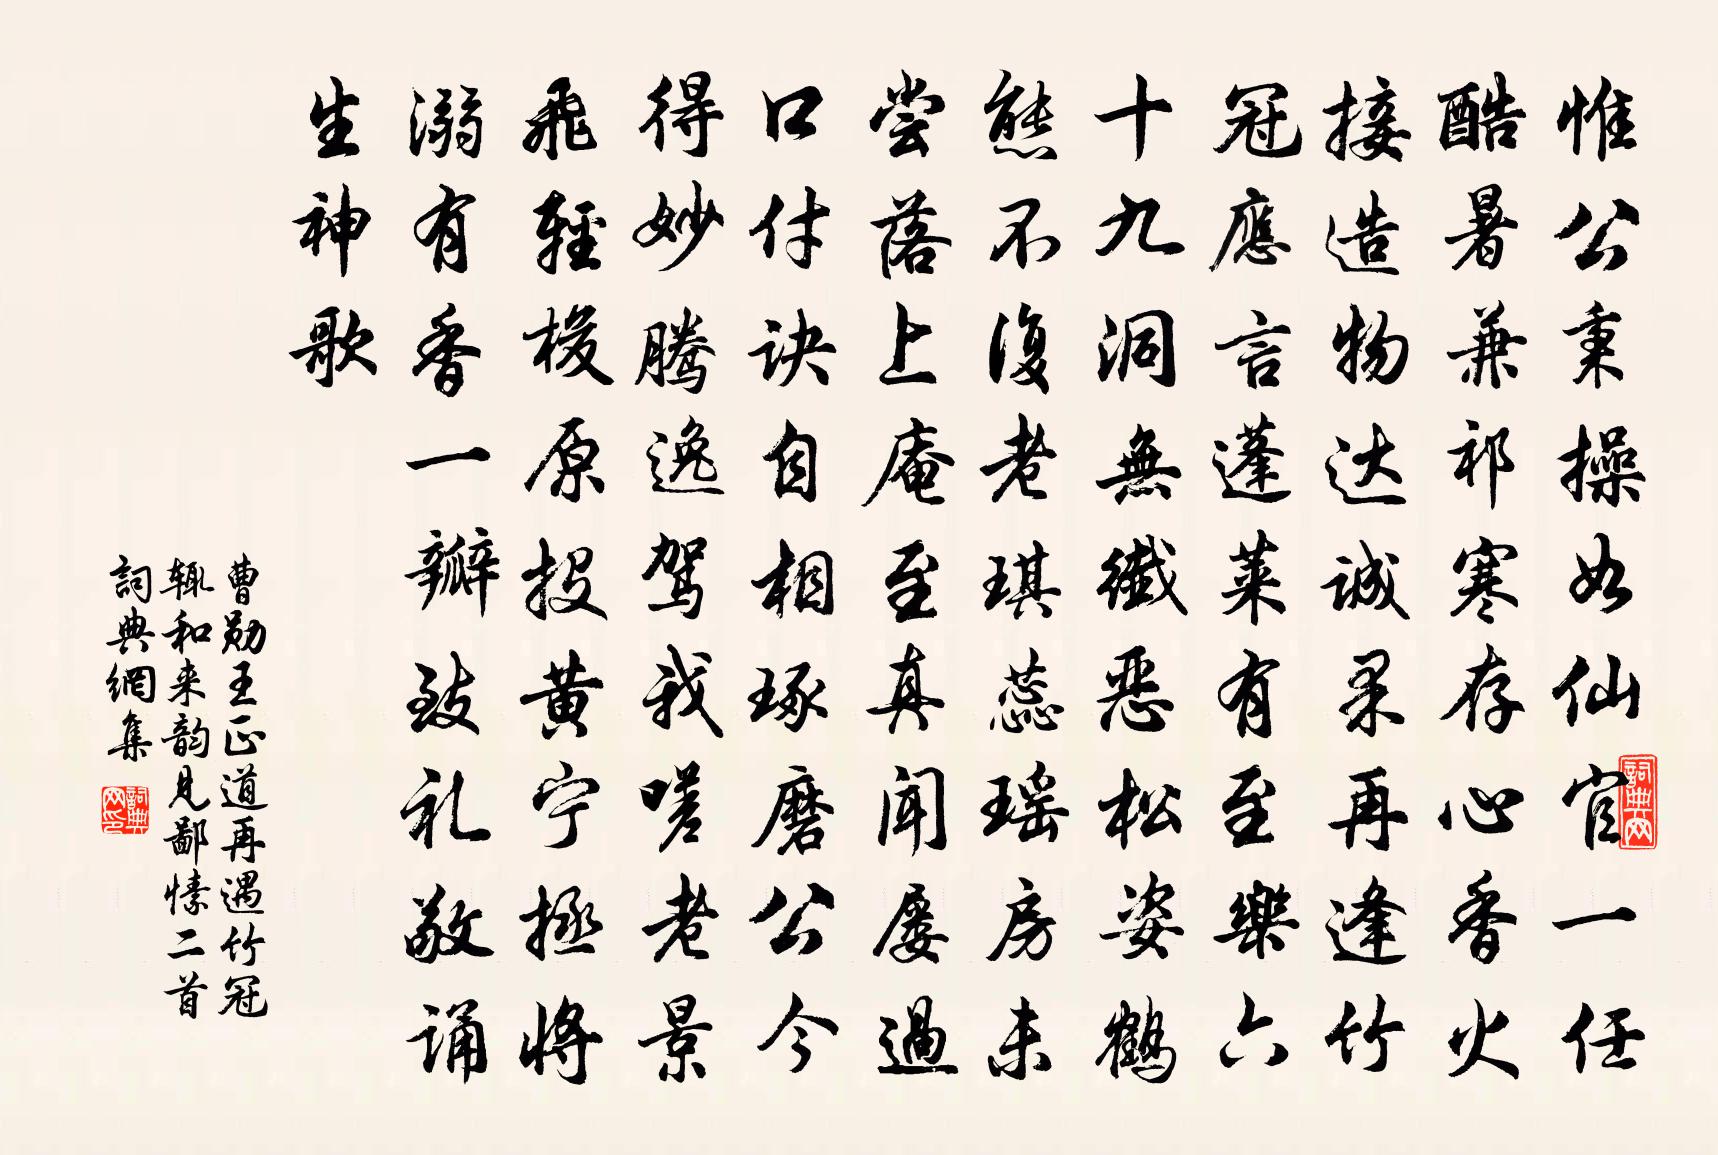 惟公秉操如仙官一任
酷暑兼祁寒存心香火
接造物达诚柔再逢竹
冠應言蓬莱有至樂六
十九洞無纖恶松姿鶴
態不復老琪蕊瑶房未
尝落上庵至真闻屡過
口付诀自相琢磨公今
得妙腾逸驾我嗟老景
飛輕梭原投黄宁拯將
溺有香一瓣致礼敬诵
生神歌
曹勋王正道再遇竹冠
辄和来韵见鄙愫二首
詞典網集
詞典网
詞典网